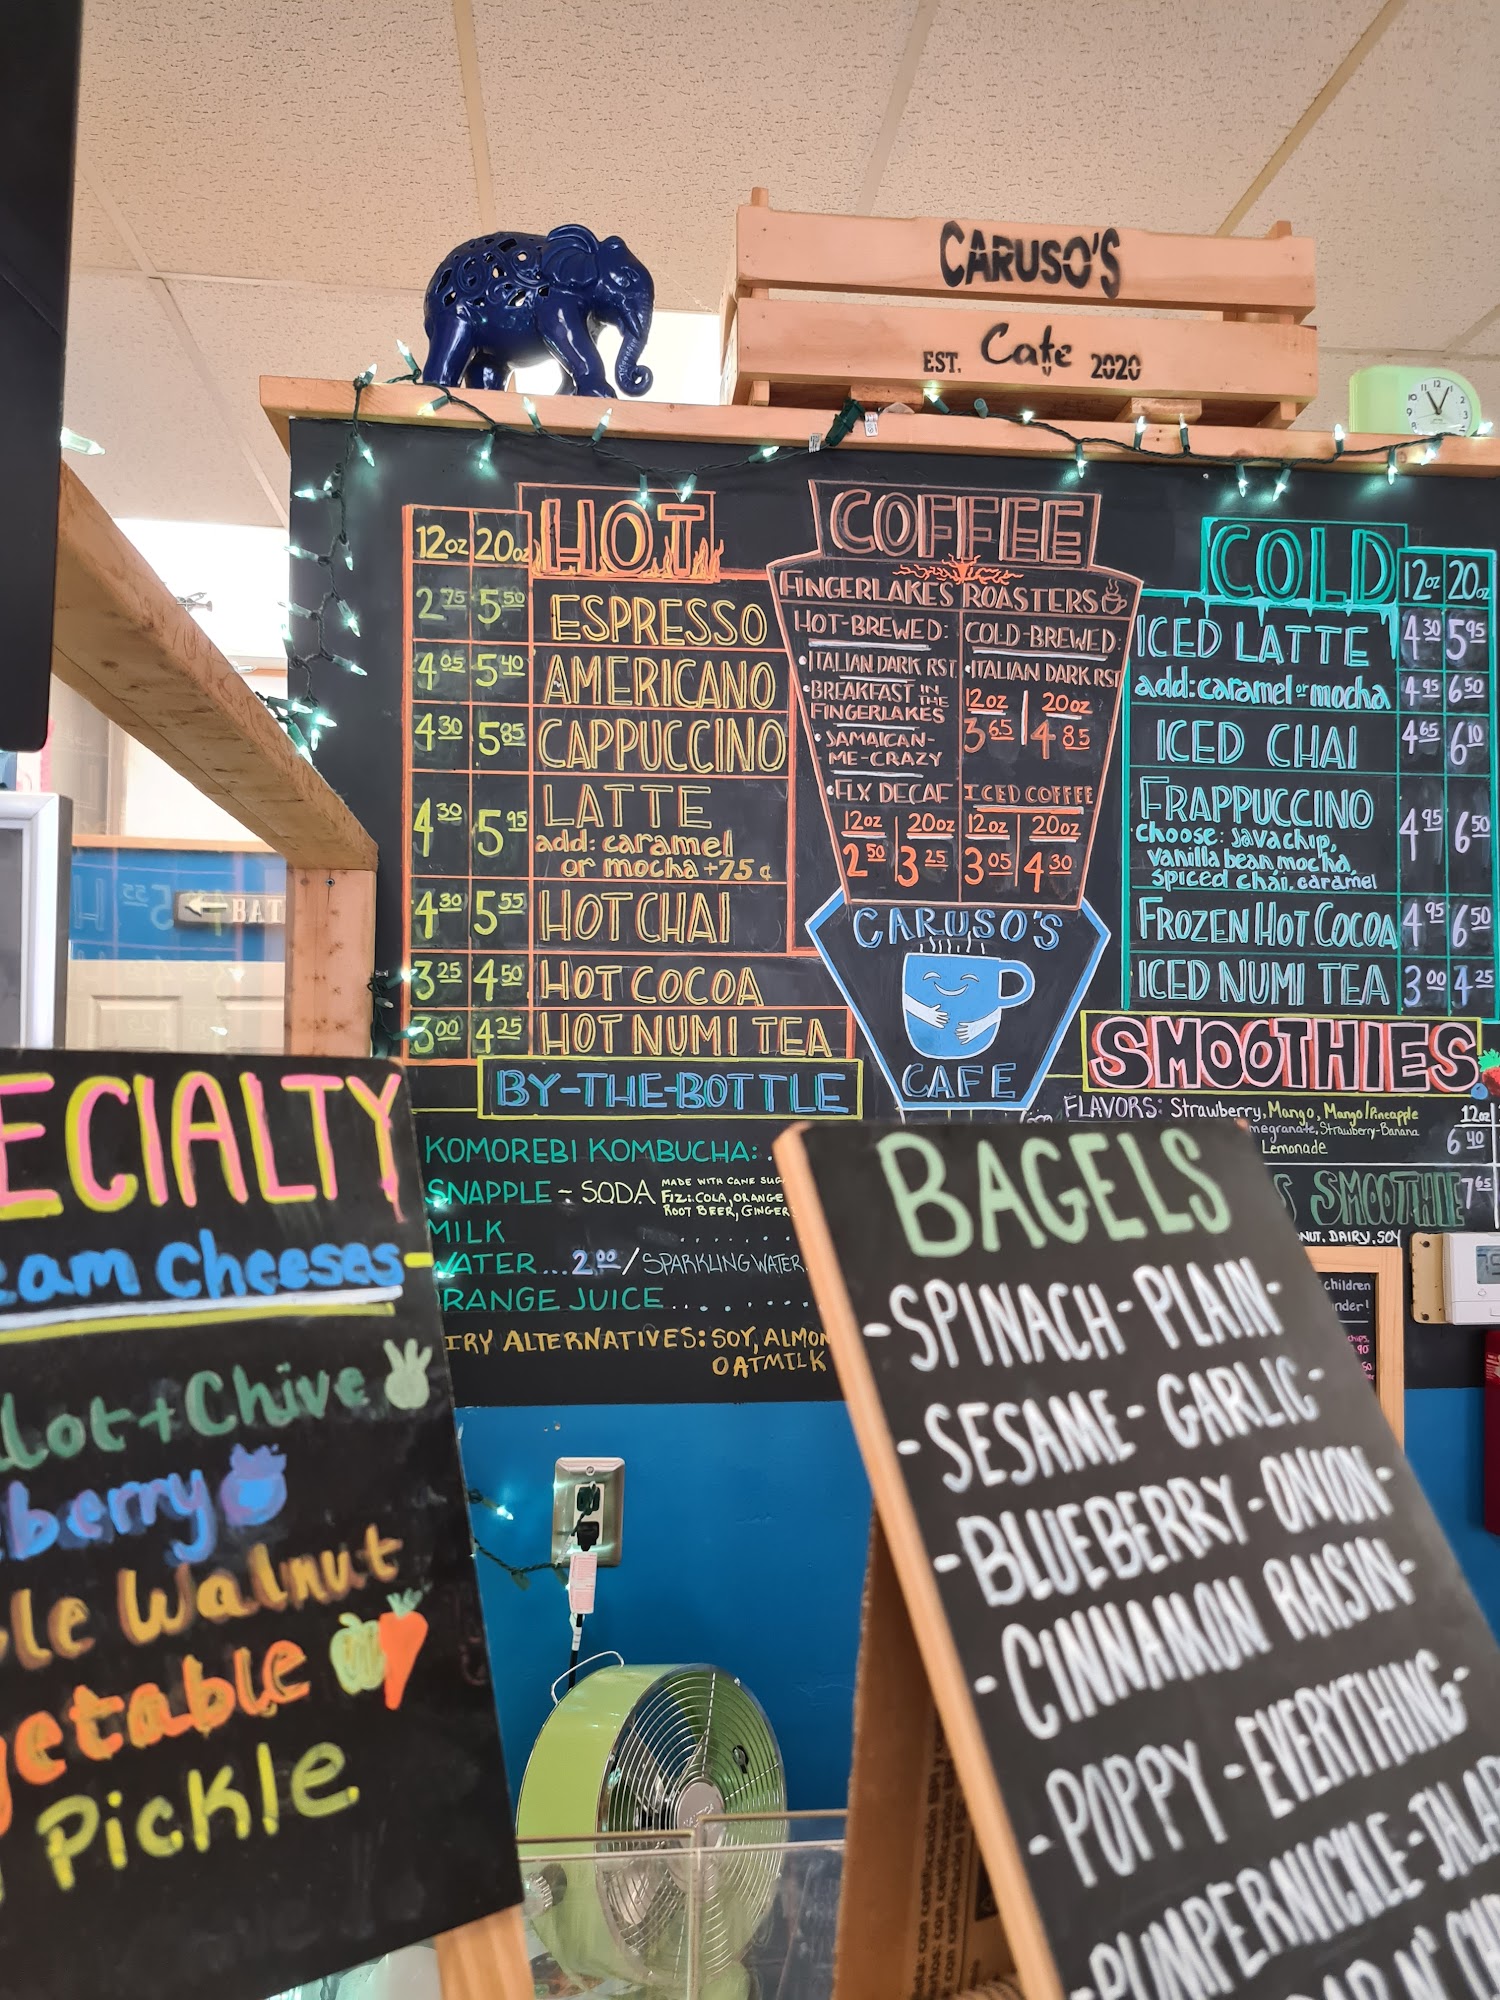 CARUSO'S
EST. Cafe 2020
12oz 20oz HOT
2.75 5.50 ESPRESSO
4.05 5.40 AMERICANO
4.30 5.85 CAPPUCCINO
4.30 5.95 LATTE
add: caramel
or mocha +75¢
4.30 5.55 HOT CHAI
3.25 4.50 HOT COCOA
3.00 4.25 HOT NUMI TEA
COFFEE
FINGERLAKES ROASTERS
HOT-BREWED:
•ITALIAN DARK RST
•BREAKFAST IN THE
FINGERLAKES
•JAMAICAN-
ME-CRAZY
•FLX DECAF
12oz 20oz
2.50 3.25
COLD-BREWED:
•ITALIAN DARK RST
12oz 20oz
3.65 4.85
ICED COFFEE
12oz 20oz
3.05 4.30
CARUSO'S
CAFE
COLD 12oz 20oz
ICED LATTE 4.30 5.95
add: caramel or mocha 4.95 6.50
ICED CHAI 4.65 6.10
FRAPPUCCINO 4.95 6.50
choose: javachip,
vanilla bean, mocha,
spiced chai, caramel
FROZEN HOT COCOA 4.95 6.50
ICED NUMI TEA 3.00 4.25
SMOOTHIES
FLAVORS: Strawberry, Mango, Mango/Pineapple 12oz
megranate, Strawberry-Banana 6.40
Lemonade
SMOOTHIE 7.65
NUT, DAIRY, SOY
children
BY-THE-BOTTLE
KOMOREBI KOMBUCHA:
SNAPPLE - SODA MADE WITH CANE SUG
Fizi: COLA, ORANGE
ROOT BEER, GINGER
MILK ........
WATER...2.00/SPARKLING WATER
ORANGE JUICE........
IRY ALTERNATIVES: SOY, ALMON
OATMILK
BAT
ECIALTY
eam Cheeses-
llot + Chive
berry
le Walnut
getable
Pickle
BAGELS
-SPINACH-PLAIN-
-SESAME-GARLIC-
-BLUEBERRY-ONION-
-CINNAMON RAISIN-
-POPPY-EVERYTHING-
-PUMPERNICKLE-JALAP